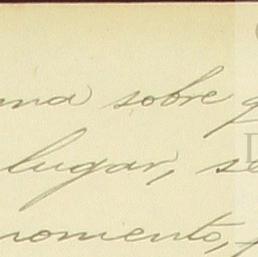 ma sobre
lugar, se
momento,